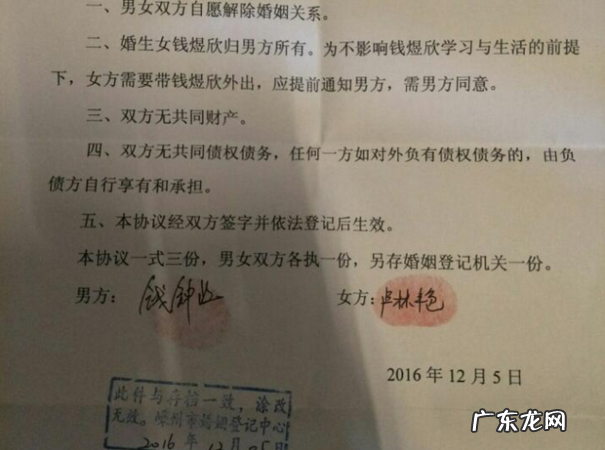 一、男女双方自愿解除婚姻关系。
二、婚生女钱煜欣归男方所有。为不影响钱煜欣学习与生活的前提
下，女方需要带钱煜欣外出，应提前通知男方，需男方同意。
三、双方无共同财产。
四、双方无共同债权债务，任何一方如对外负有债权债务的，由负
债方自行享有和承担。
五、本协议经双方签字并依法登记后生效。
本协议一式三份，男女双方各执一份，另存婚姻登记机关一份。
男方： 钱钟 女方： 卢林艳
2016 年 12 月 5 日
此件与存档一致，涂改
无效。嵊州市婚姻登记中心
2016 年 12 月 05 日
广东龙网